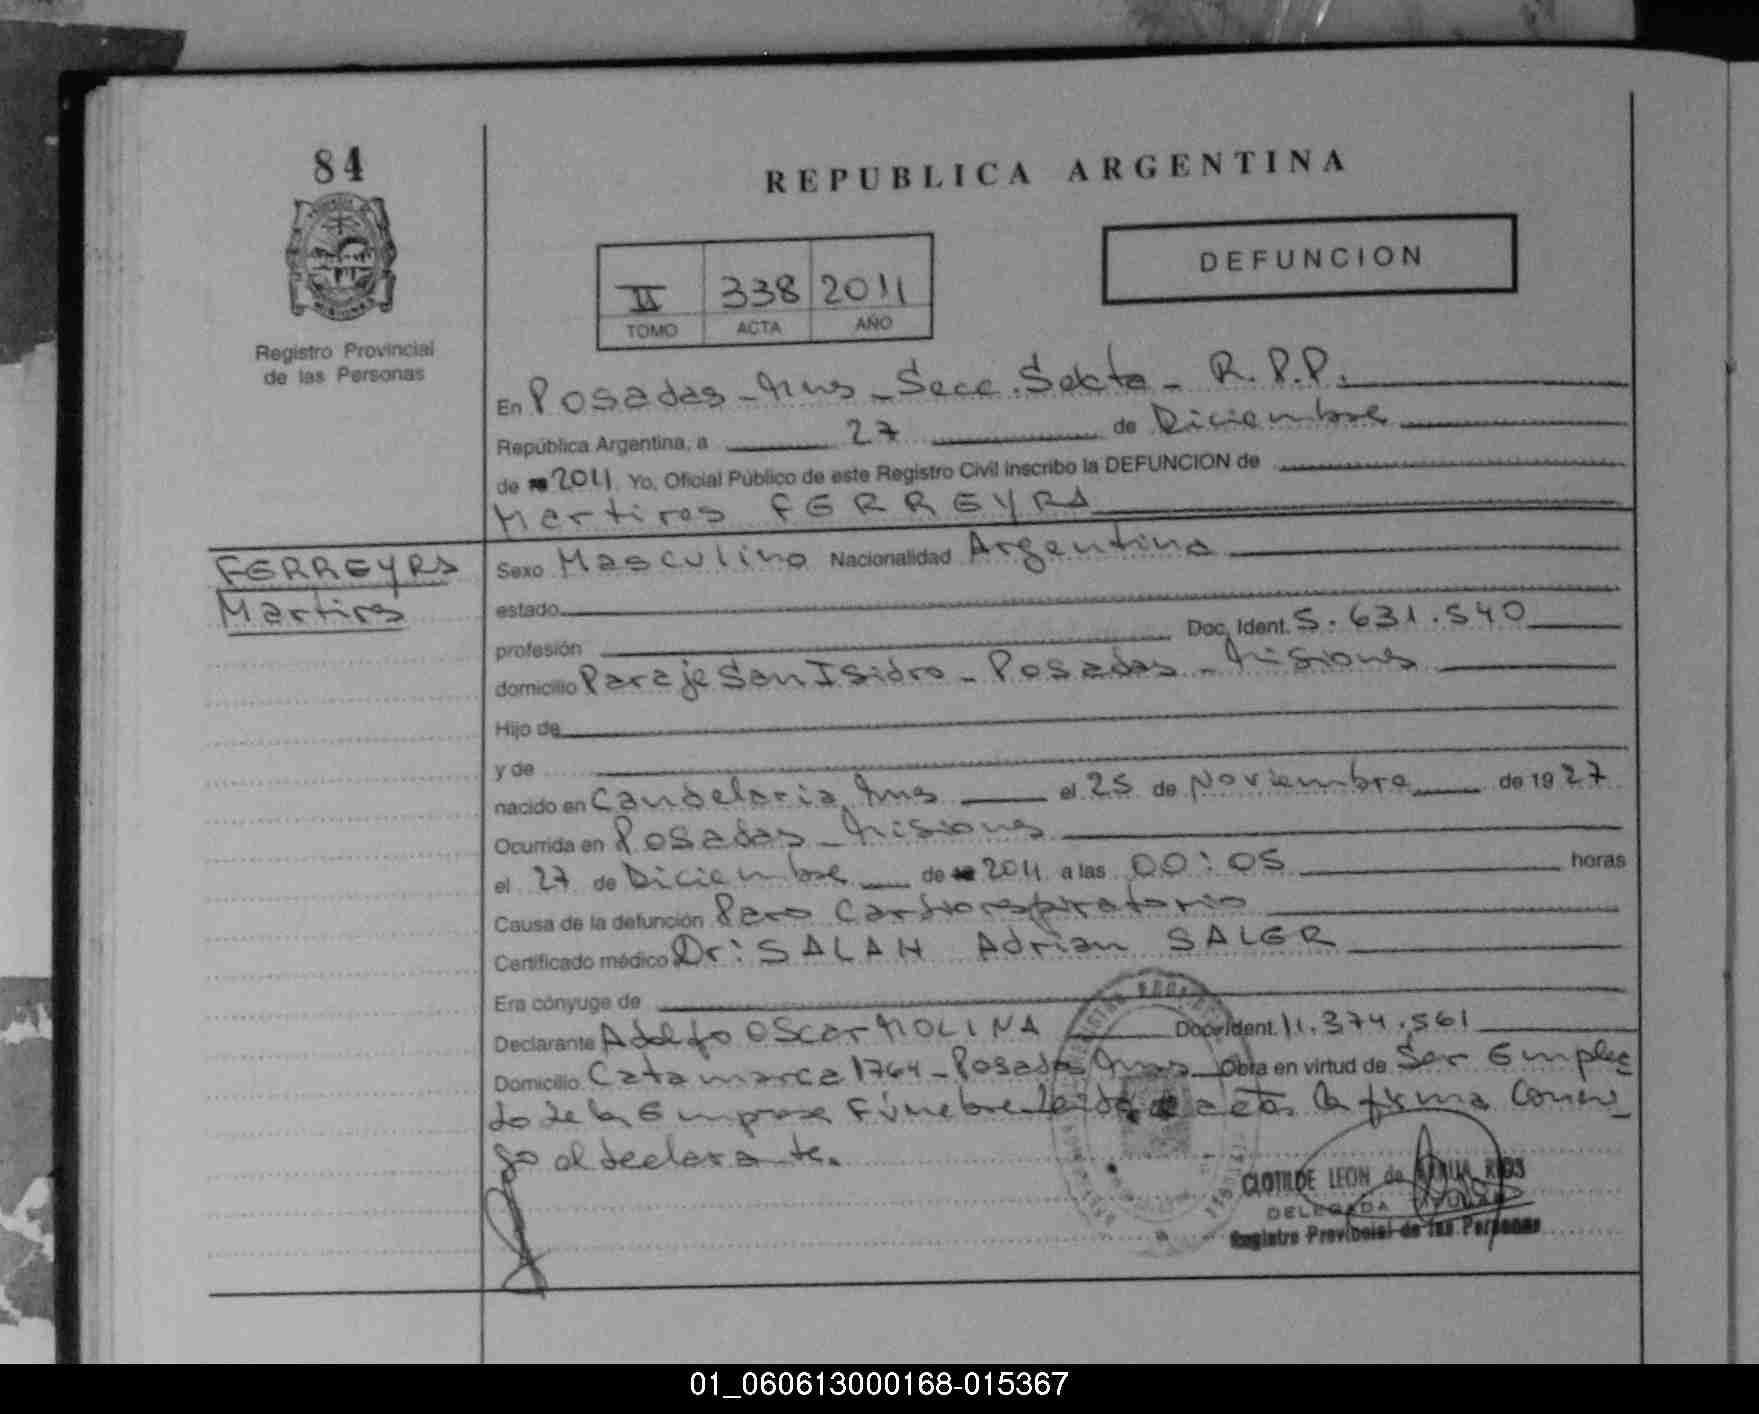 84
REPUBLICA ARGENTINA
DEFUNCION
II 338 2011
TOMO ACTA AÑO
Registro Provincial
de las Personas
En Posadas - Mns - Secc. Sexta - R.P.P.
República Argentina, a 27 de Diciembre
de 2011 Yo, Oficial Público de este Registro Civil inscribo la DEFUNCION de
Martires FERREYRA
FERREYRA
Martires
Sexo Masculino Nacionalidad Argentina
estado
profesión Doc. Ident. 5.631.540
domicilio Paraje San Isidro - Posadas - Misiones
Hijo de
y de
nacido en Candelaria, Mns el 25 de Noviembre de 1927
Ocurrida en Posadas - Misiones
el 27 de Diciembre de 2011 a las 00:05 horas
Causa de la defunción Paro Cardiorespiratorio
Certificado médico Dr: SALAN Adrian SALER
Era cónyuge de
Declarante Adolfo Oscar MOLINA Doc. Ident. 11.374.561
Domicilio Catamarca 1764 - Posadas Mns Obra en virtud de Ser Emplea
do de la Empresa Fúnebre leída acta la firma Conmi
go el declarante.
CLOTILDE LEON de
DELEGADA
Registro Provincial de las Personas
01_060613000168-015367